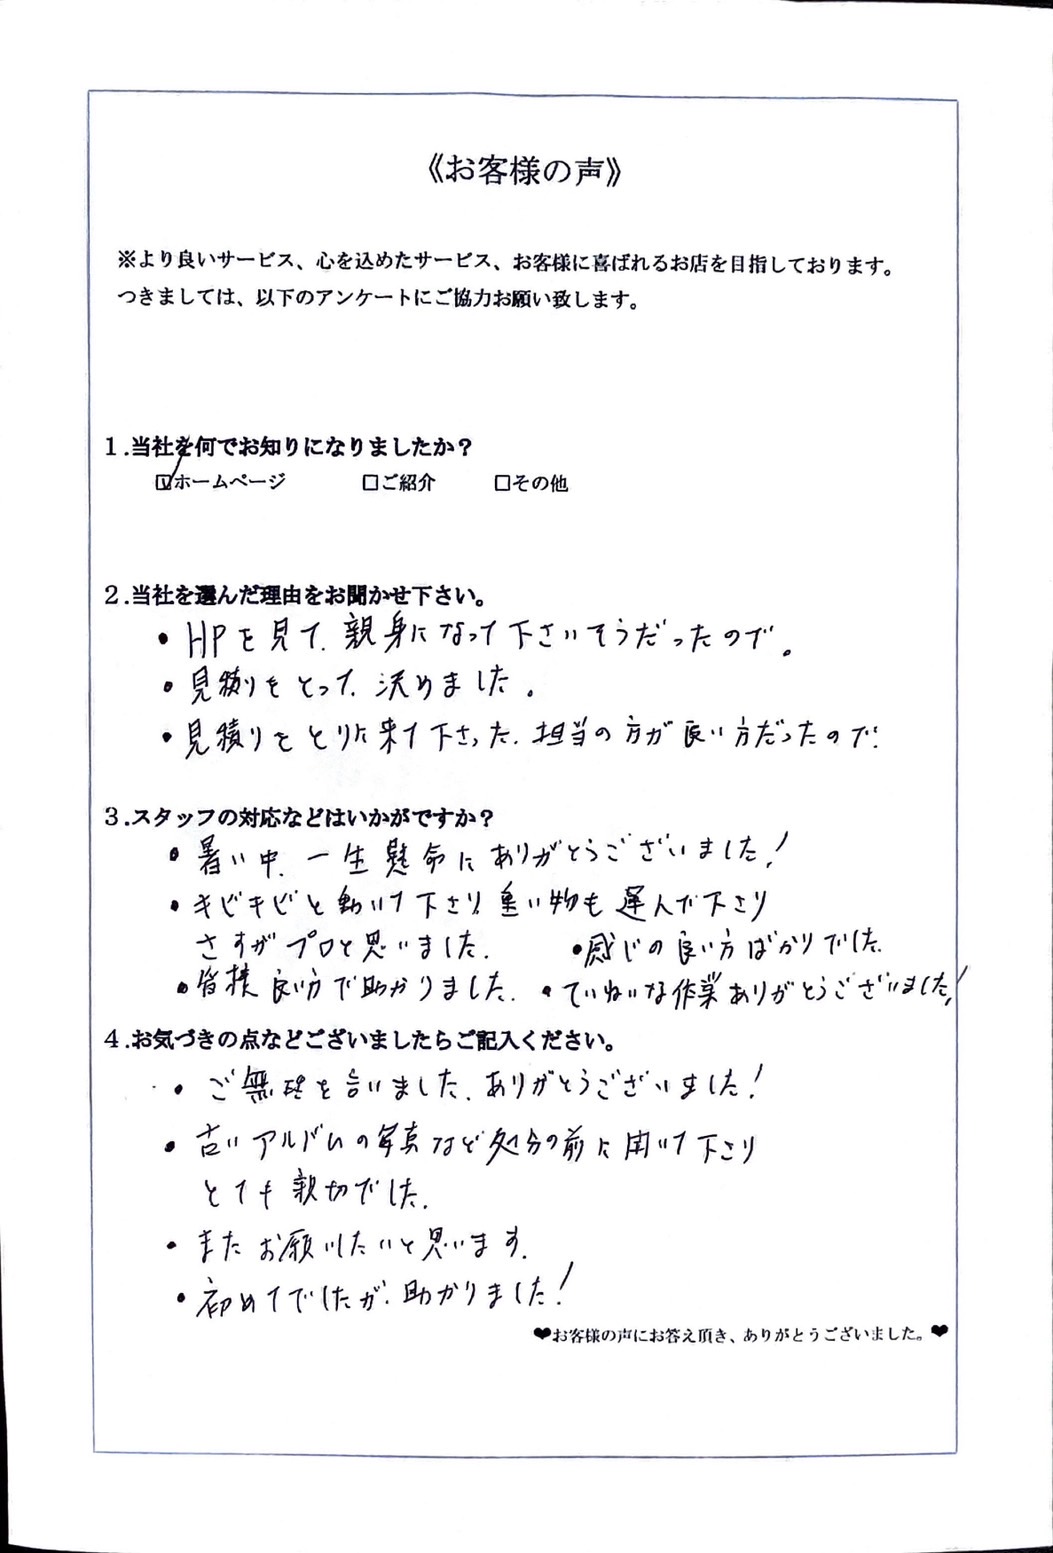 《お客様の声》
※より良いサービス、心を込めたサービス、お客様に喜ばれるお店を目指しております。
つきましては、以下のアンケートにご協力お願い致します。
１.当社を何でお知りになりましたか？
☑ホームページ □ご紹介 □その他
２.当社を選んだ理由をお聞かせ下さい。
・HPを見て、親身になって下さいそうだったので。
・見積りをとって、決めました。
・見積りをとりに来て下さった、担当の方が良い方だったので、
３.スタッフの対応などはいかがですか？
・暑い中、一生懸命にありがとうございました！
・キビキビと動いて下さり、重い物も運んで下さり
さすがプロと思いました。 ・感じの良い方ばかりでした。
・皆様良い方で助かりました。・ていねいな作業ありがとうございました！
４.お気づきの点などございましたらご記入ください。
・ご無理を言いました、ありがとうございました！
・古いアルバムの写真など処分の前に聞いて下さり
とても親切でした。
・またお願いしたいと思います。
・初めてでしたが、助かりました！
❤お客様の声にお答え頂き、ありがとうございました。❤